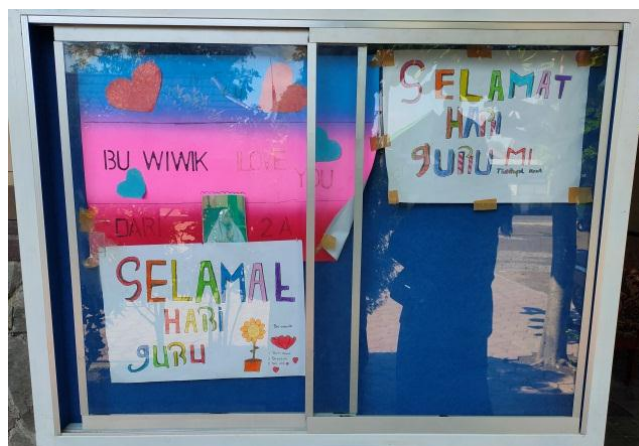 BU WIWIK LOVE
YOU
DARI 2A
SELAMAT
HARI
GURU
SELAMAT
HARI
GURU MI